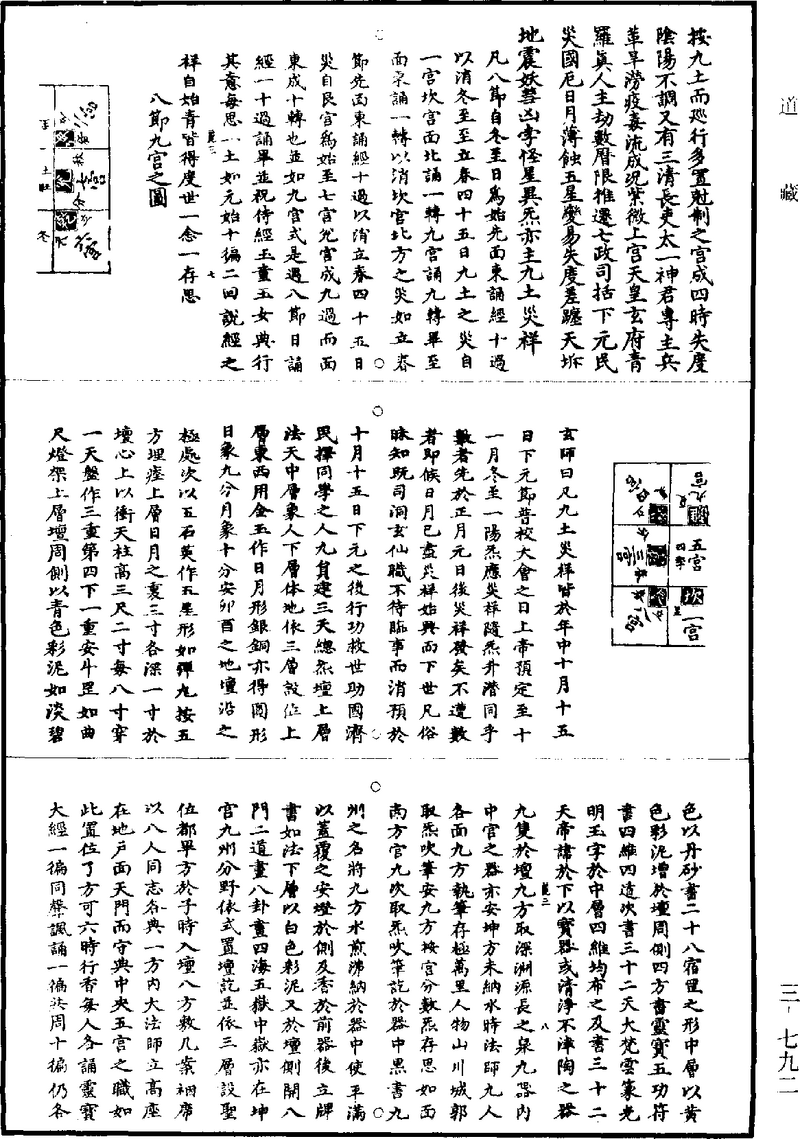 道藏
按九土而巡行多置尅制之宮成四時失度
陰陽不調又有三清長吏太一神君專主兵
革旱澇疫毒流成況紫微上宮天皇玄府青
羅真人主劫數曆限推遷七政司括下元民
災國厄日月薄蝕五星變易失度差躔天坼
地震妖彗凶孛怪星異炁亦主九土災祥
凡八節自冬至日為始先面東誦經十過
以消冬至至立春四十五日九土之災自
一宮坎宮面北誦一轉九宮誦九轉畢至
面東誦一轉以消坎宮北方之災如立春
節先面東誦經十過以消立春四十五日
災自艮宮為始至七宮兌宮成九過而面
東成十轉也並如九宮式是遇八節日誦
經一十過誦畢並祝侍經玉童玉女典行
其意每思一土如元始十徧二回說經之
祥自始青皆得度世一念一存思
八節九宮之圖
玄師曰凡九土災祥皆於年中十月十五
日下元節普校大會之日上帝預定至十
一月冬至一陽炁應災祥隨炁升潛同乎
數者先於正月元日後災祥發矣不遭數
者即候日月已盡災祥始興而下世凡俗
昧知既司洞玄仙職不待臨事而消預於
十月十五日下元之後行功救世助國濟
民擇同學之人九員建三天總炁壇上層
法天中層象人下層體地依三層敘位上
層東西用金玉作日月形銀銅亦得圓形
日象九分月象十分安卯酉之地壇沿之
極處次以五石英作五星形如彈丸按五
方埋瘞上層日月之裏三寸各深一寸於
壇心上以衝天柱高三尺二寸每八寸穿
一天盤作三重第四下一重安斗罡如曲
尺燈架上層壇周側以青色彩泥如淡碧
九宮
五宮
坎一宮
色以丹砂書二十八宿罡之形中層以黃
色彩泥增於壇周側四方書靈寶五功符
書四維四道次書三十二天大梵雲篆光
明玉字於中層四維均布之及書三十二
天帝諱於下以寶器或清淨不津陶之器
九隻於壇九方取深淵源長之泉九器內
中宮之器亦安坤方未納水時法師九人
各面九方執筆存極萬里人物山川城郭
取炁吹筆安九方按宮分數炁存思如面
南方宮九吹取炁吹筆訖於器中黑書九
州之名將九方水煎沸納於器中使平滿
以蓋覆之安燈於側及香於前器後立牌
書如法下層以白色彩泥又於壇側開八
門二道畫八卦畫四海五嶽中嶽亦在坤
宮九州分野依式置壇訖並依三層設聖
位都畢方於子時入壇八方敷几案裀席
以八人同志各典一方內大法師立高座
在地戶面天門而守典中央五宮之職如
此置位了方可六時行香每人各誦靈寶
大經一徧同聲諷誦一徧共周十徧仍各
三-七九二